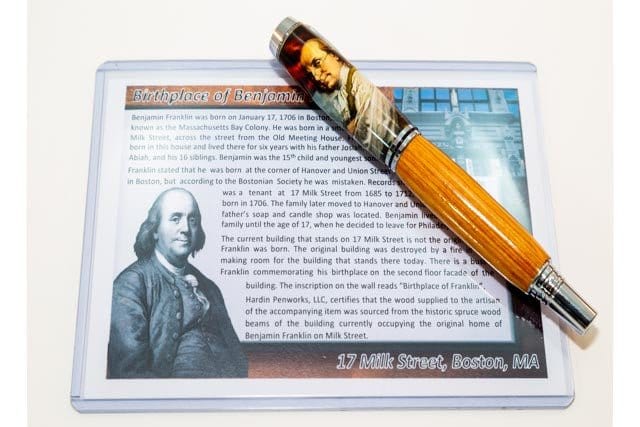 Birthplace of Benjamin
Benjamin Franklin was born on January 17, 1706 in Boston,
known as the Massachusetts Bay Colony. He was born in a
Milk Street, across the street from the Old Meeting House.
born in this house and lived there for six years with his father Josiah
Abiah, and his 16 siblings. Benjamin was the 15th child and youngest
Franklin stated that he was born at the corner of Hanover and Union Street
in Boston, but according to the Bostonian Society he was mistaken. Records
was a tenant at 17 Milk Street from 1685 to 1712
born in 1706. The family later moved to Hanover and
father's soap and candle shop was located. Benjamin
family until the age of 17, when he decided to leave for
The current building that stands on 17 Milk Street is not the
Franklin was born. The original building was destroyed by a fire
making room for the building that stands there today. There is a
Franklin commemorating his birthplace on the second floor facade of the
building. The inscription on the wall reads "Birthplace of Franklin".
Hardin Penworks, LLC, certifies that the wood supplied to the artisan
of the accompanying item was sourced from the historic spruce wood
beams of the building currently occupying the original home of
Benjamin Franklin on Milk Street.
17 Milk Street, Boston, MA